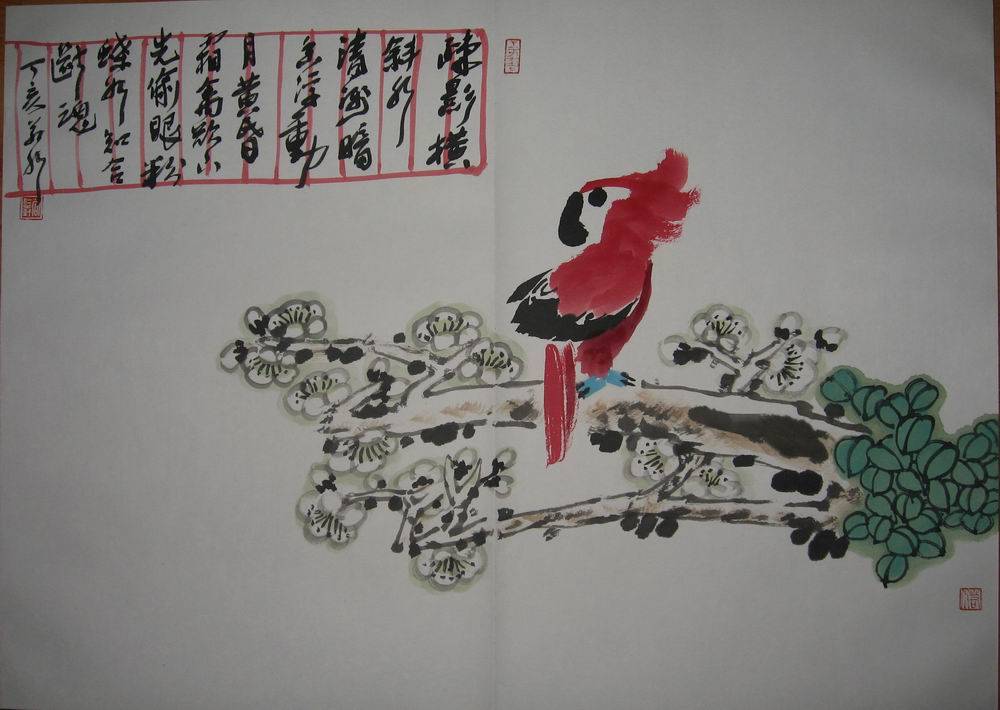 疎影横
斜水
清淺暗
香浮動
月黄昏
霜禽欲下
先偷眼粉
蝶如知合
斷魂
丁亥